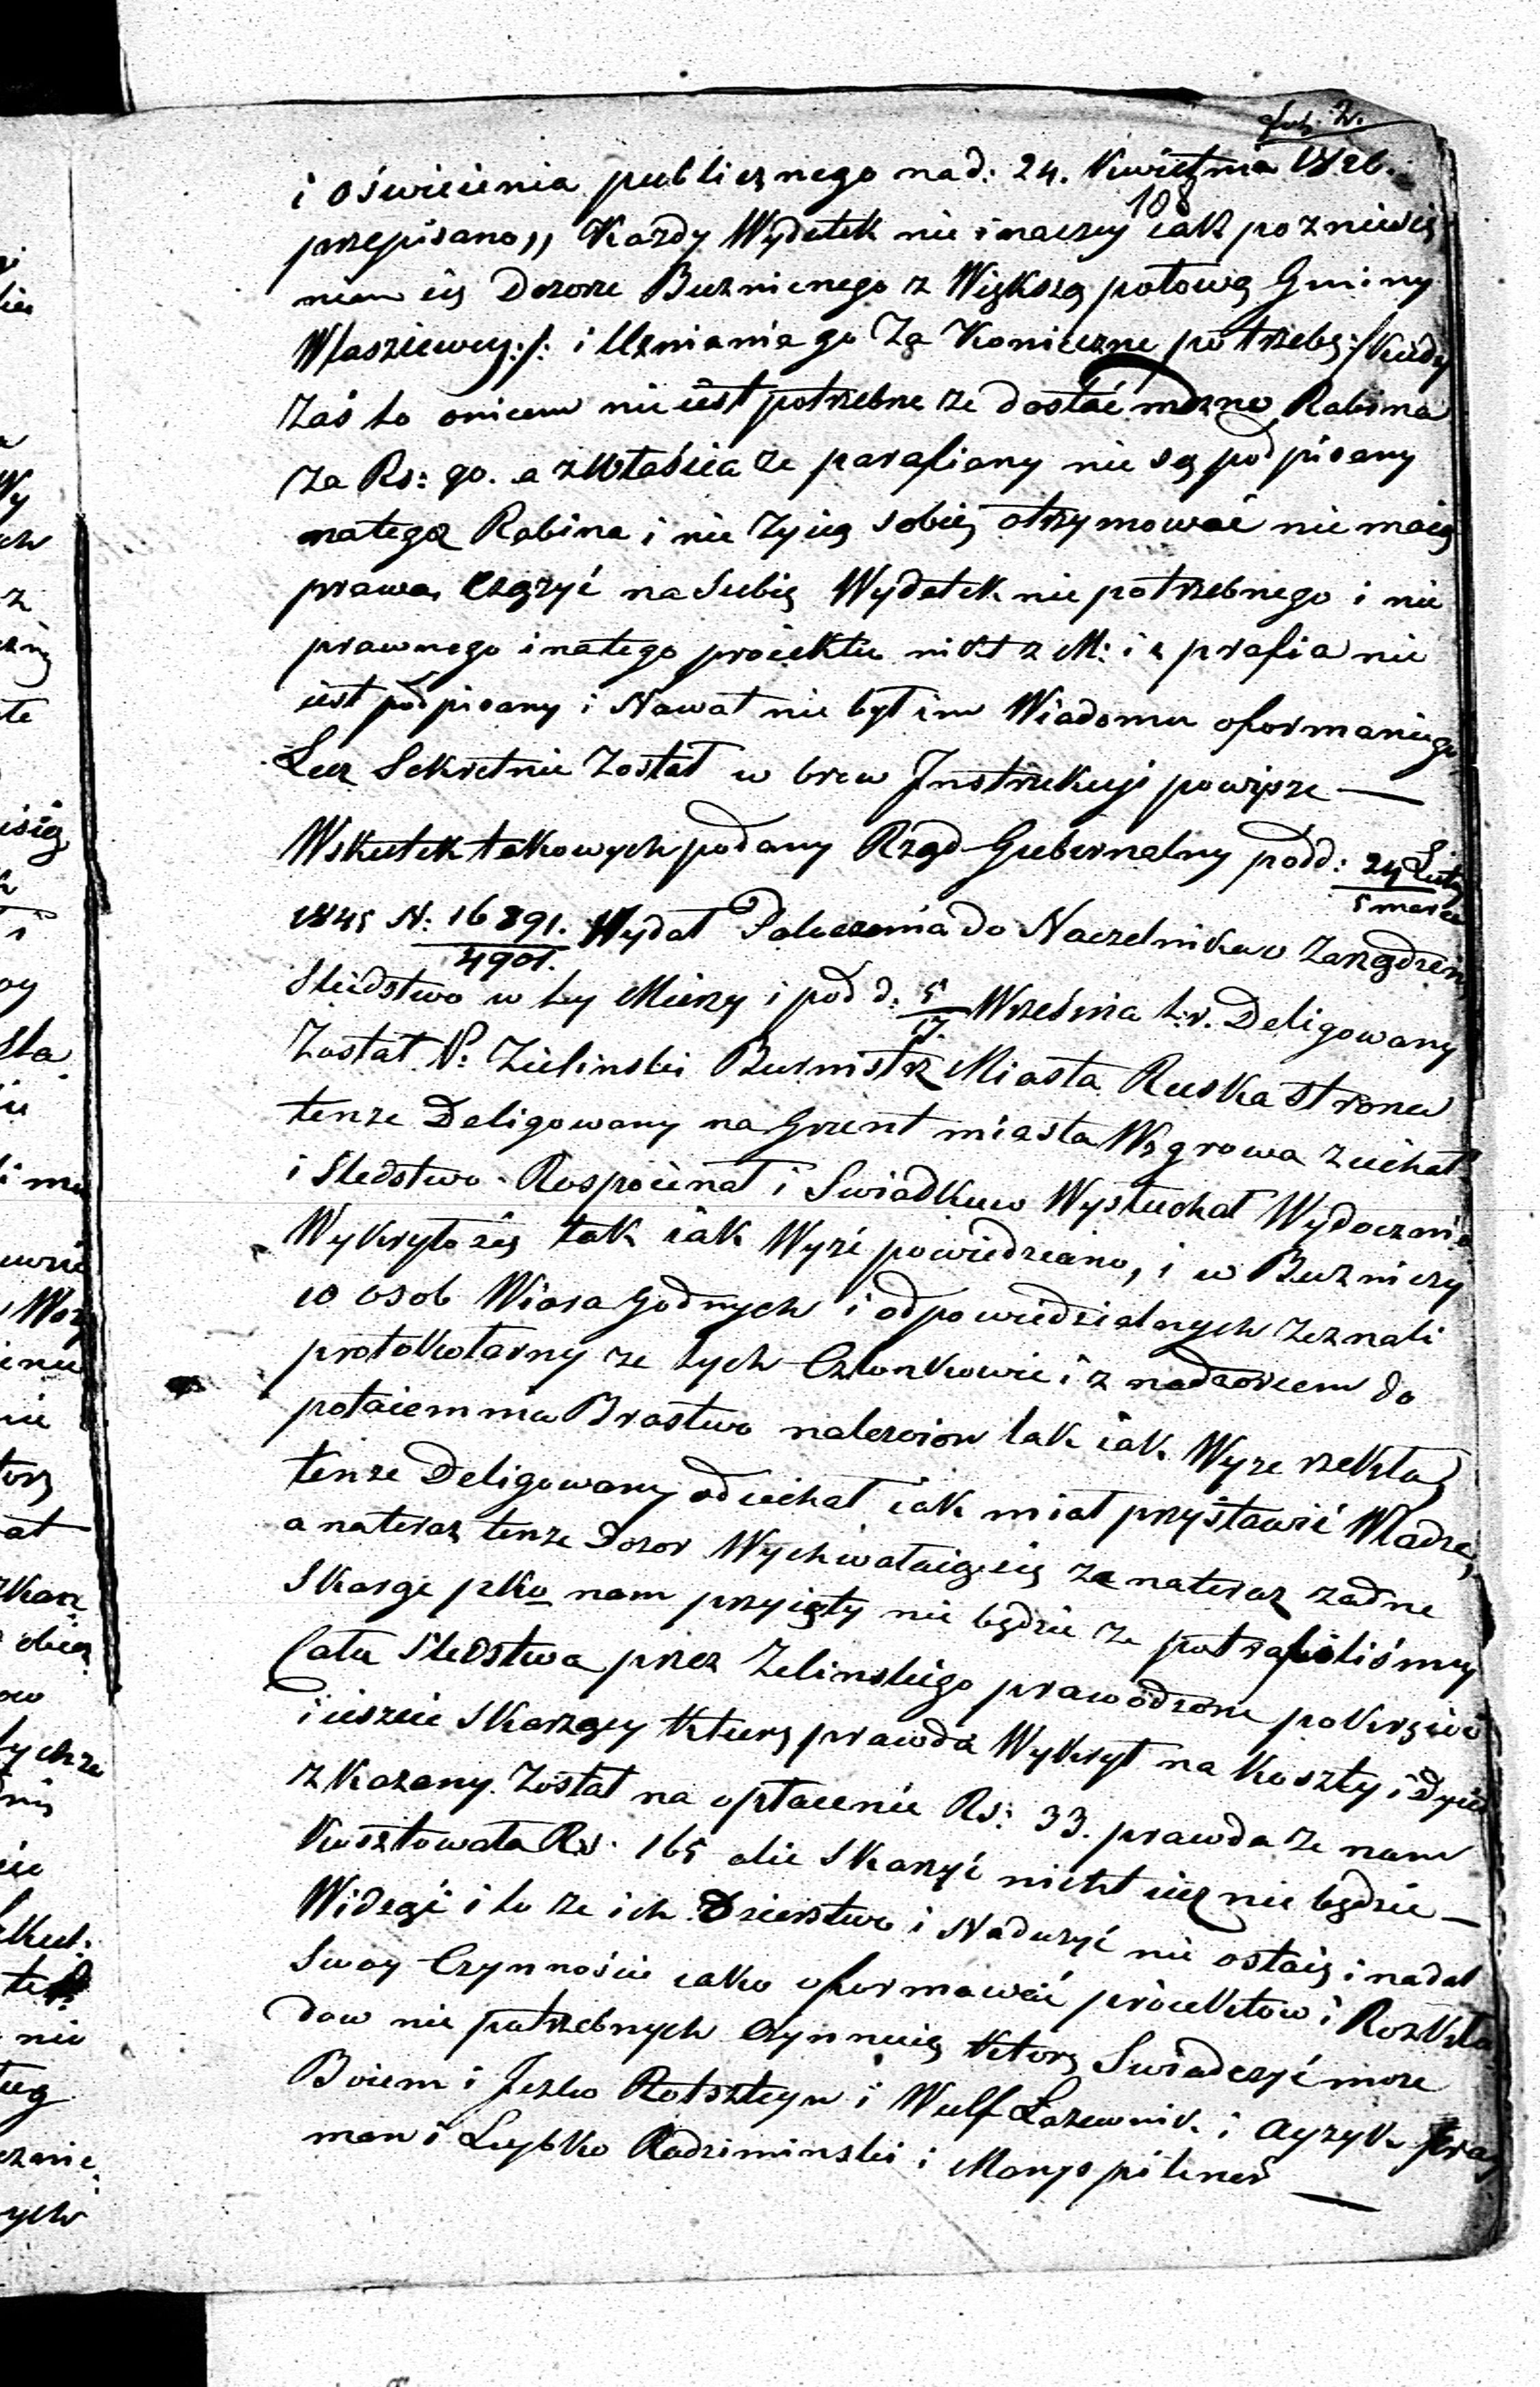 2.
i oświecenia publicznego nad: 24. Kwietnia 1826.
108
przepisano,, Kazdy Wydatek nie inaczey iak po zniesie
niem się Dozore Buznicnego z Większą połową Gminy
Własziewey:/: i Uznania go Za Konieczne potrzebę:/ Kiedy
zaś to onicem nie iest potrzebne ze dostać mozno Rabina
za Rs: 90. a zwłaścia ze parafiany nie są podpisany
natego Rabina i nie Zycią sobię otrzymować nie maią
prawa Czązyć na Siebię Wydatek nie potrzebnego i nie
prawnego i natego proiektu nikt z M: i z prafia nie
iest podpisany i Nawat nie był im Wiadomu oformaniego
Lecz Sekretnie Został w brew Instrukcyi powiższe —
Wskutek takowych podany Rząd Gubernalny podd: 24 Luty
5 marca
1845 N: 16891. Wydał Poleczenia do Naczelnikow Zarządzenie
4901.
Sliedstwo w tey Mierzy i pod d. 5 Wrzesnia t.r. Deligowany
17.
Zostat P. Zielinski Burmistrz Miasta Ruska strona
tenze Deligowany na Grunt miasta Węgrowa zuchał
i Sledstwo Rospoienał i Swiadkuw Wysłuchał Wydoczni
Wykryto się tak iak Wyzi powiedziano, i w Buzniczy
10 osob Wiara godnych i odpowiedzialnych zeznali
protokolarny ze tych Członkowie i z nadzorcem do
potaiemnia Brastwo nalezion tak iak Wyze rzekta
tenze Deligowany odiechał iak miał przystawić Władze,
a nateraz tenze Dozor Wychwalaiąsię za nateraz zadne
Skarge pko nam przyięty nie będzie ze potrafiliśmy
Cału Sledstwa przez Zelinskiego prawodzone pokrzcić
i ieszcie skarzący Kturę prawda Wykrył na koszty i
zkazany. Zostat na opłacenie Rs: 33. prawda ze nam
Kosztowała Rs. 165 alie skarzyć nicht iuz nie będzie —
Widząć i to ze ich Dzierstwo i Naduzyć nie ostaię i nadal
Swoy Czynnoście iako oformować proiektow i Rozkła
dow nie potrzebnych Czynnuię Ktorę Swiadczyć moze
Boiem i Jesko Rotsztеyn i Wulf Łazewnik. i Ayzyk
man i Leybko Radziminski i Mongo pilner —